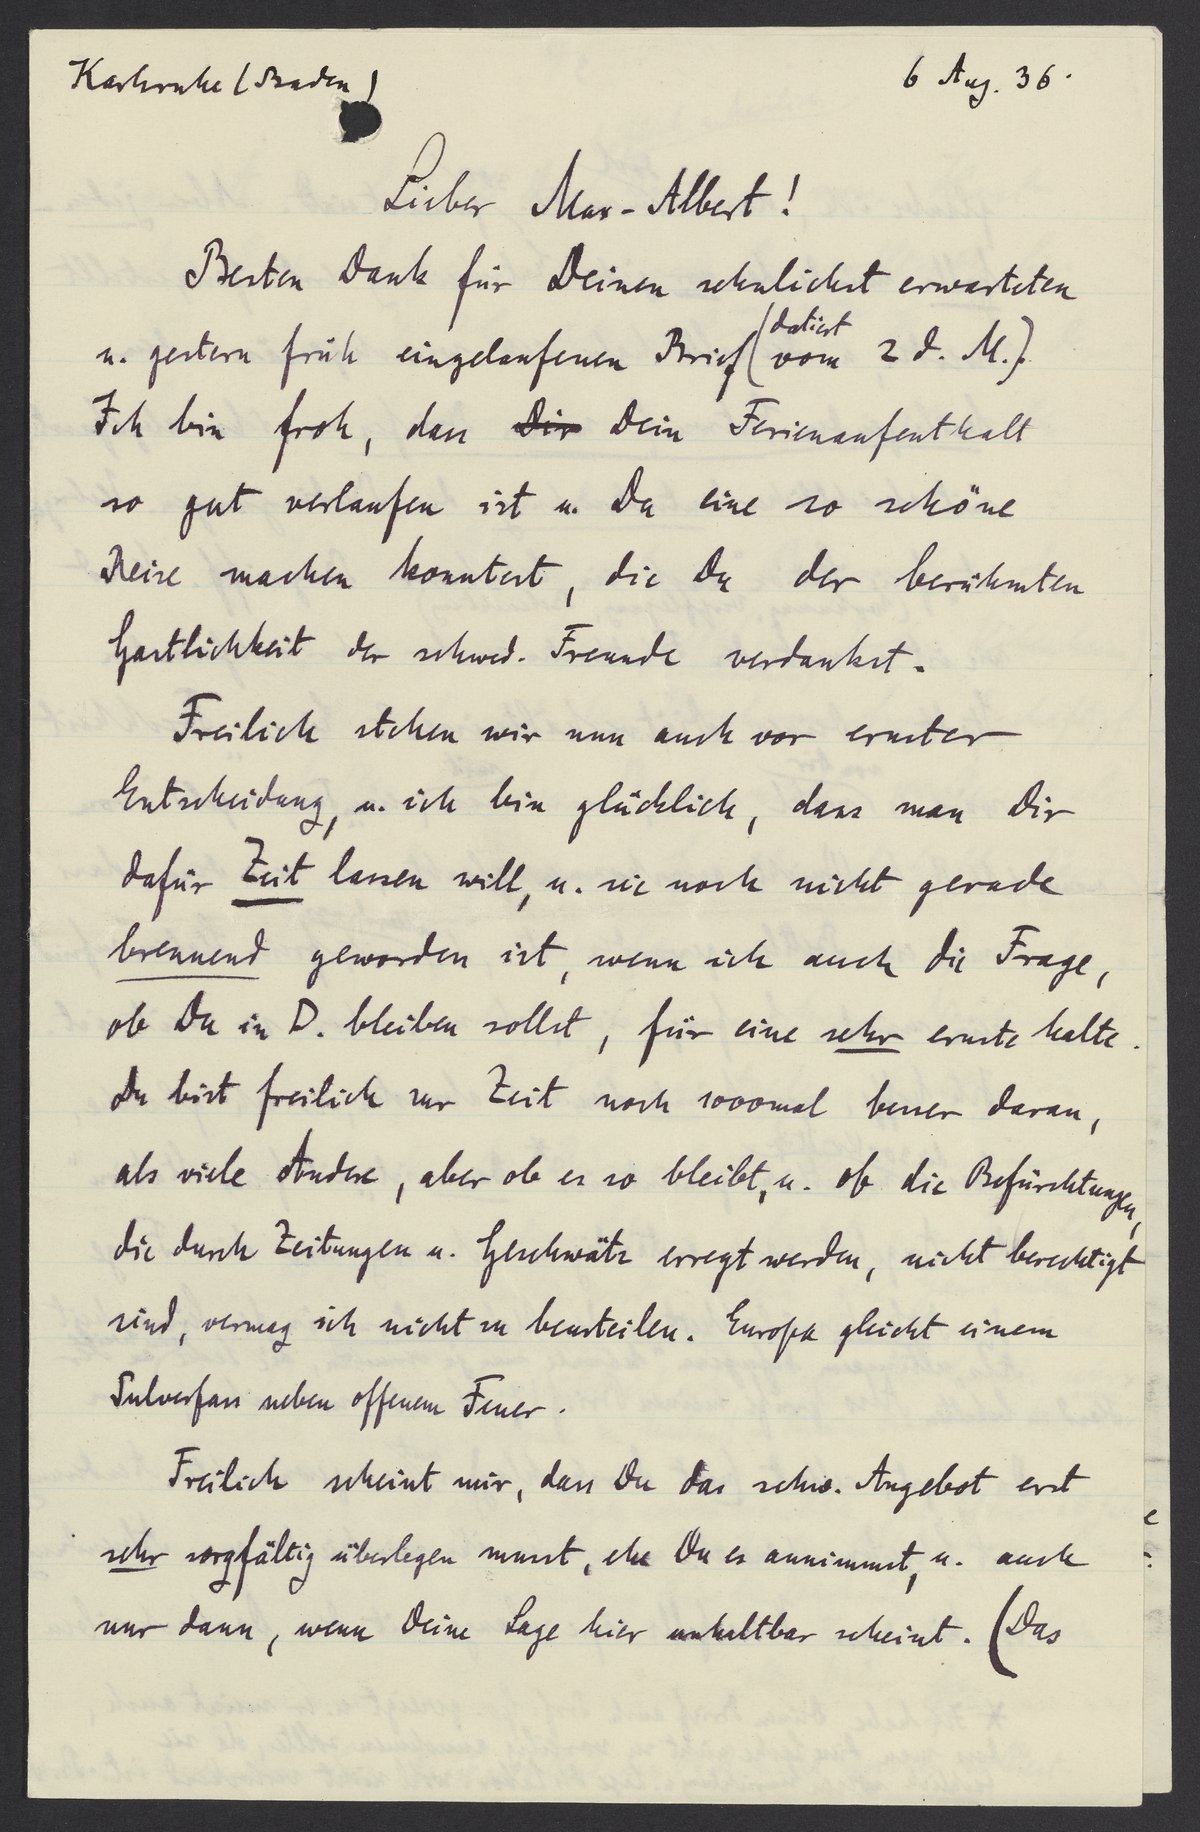 Karlsruhe (Baden)
6 Aug. 36.
Lieber Max-Albert!
Besten Dank für Deinen sehnlichst erwarteten
u. gestern früh eingelaufenen Brief (datiert vom 2 d. M.).
Ich bin froh, dass Dir Dein Ferienaufenthalt
so gut verlaufen ist u. Du eine so schöne
Reise machen konntest, die Du der berühmten
Gastlichkeit der schwed. Freunde verdankst.
Freilich stehen wir nun auch vor ernster
Entscheidung, u. ich bin glücklich, dass man Dir
dafür Zeit lassen will, u. sie noch nicht gerade
brennend geworden ist, wenn ich auch die Frage,
ob Du in D. bleiben sollst, für eine sehr ernste halte.
Du bist freilich zur Zeit noch 1000mal besser daran,
als viele Andere, aber ob es so bleibt, u. ob die Befürchtungen,
die durch Zeitungen u. Geschwätz erregt werden, nicht berechtigt
sind, vermag ich nicht zu beurteilen. Europa gleicht einem
Pulverfass neben offenem Feuer.
Freilich scheint mir, dass Du das schw. Angebot erst
sehr sorgfältig überlegen musst, ehe Du es annimmst, u. auch
nur dann, wenn Deine Lage hier unhaltbar scheint. (Das